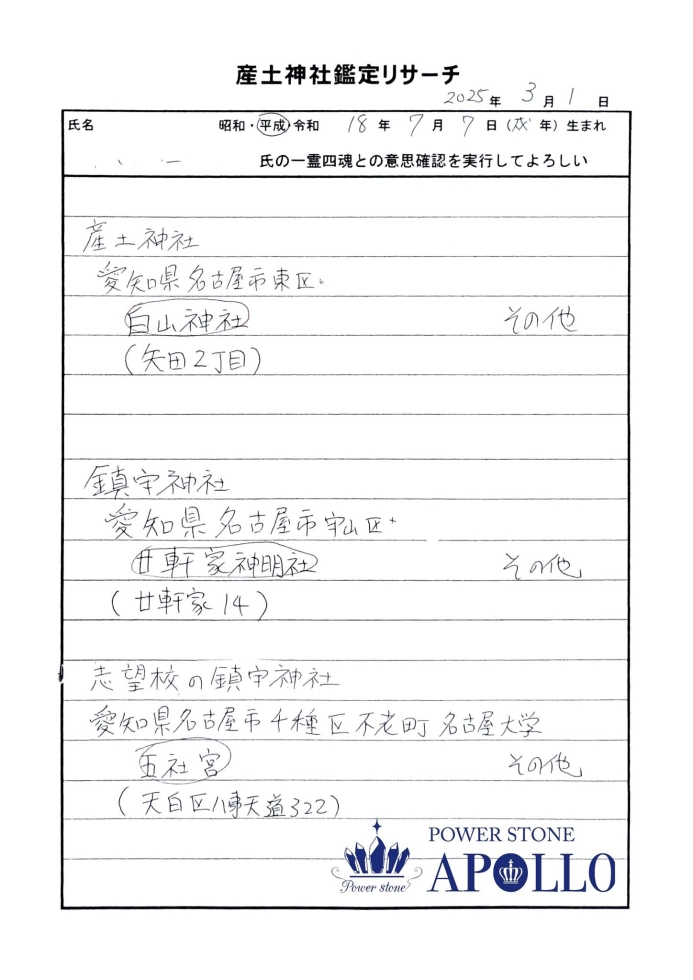 産土神社鑑定リサーチ
2025年 3月 1日
氏名 昭和・平成・令和 18年 7月 7日(戌年)生まれ
氏の一霊四魂との意思確認を実行してよろしい
産土神社
愛知県名古屋市東区
白山神社 その他
(矢田2丁目)
鎮守神社
愛知県名古屋市守山区
廿軒家神明社 その他
(廿軒家14)
志望校の鎮守神社
愛知県名古屋市千種区不老町 名古屋大学
五社宮 その他
(天白区八事天道322)
POWER STONE
APOLLO
Power stone